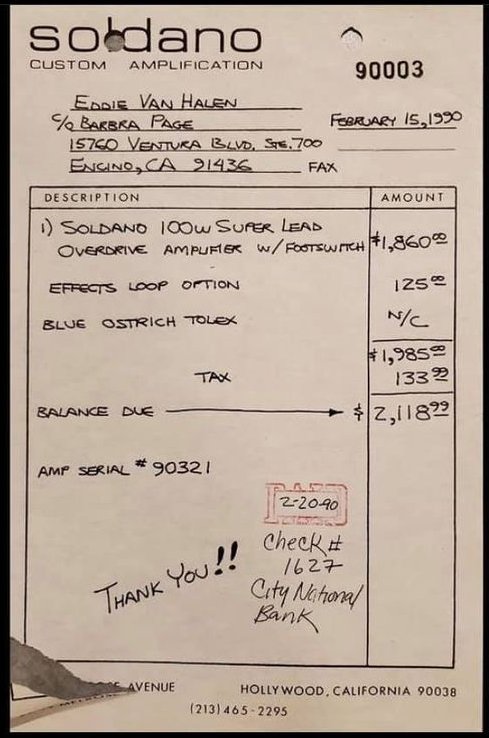 soldano
CUSTOM AMPLIFICATION
90003
EDDIE VAN HALEN
C/O BARBRA PAGE
FEBRUARY 15, 1990
15760 VENTURA BLVD, STE. 700
ENCINO, CA 91436
FAX
DESCRIPTION AMOUNT
1) SOLDANO 100W SUPER LEAD
OVERDRIVE AMPLIFIER W/FOOTSWITCH $1,860.00
EFFECTS LOOP OPTION 125.00
BLUE OSTRICH TOLEX N/C
$1,985.00
TAX 133.99
BALANCE DUE → $ 2,118.99
AMP SERIAL # 90321
PAID
2-20-90
THANK YOU!!
Check #
1627
City National
Bank
AVENUE HOLLYWOOD, CALIFORNIA 90038
(213) 465-2295